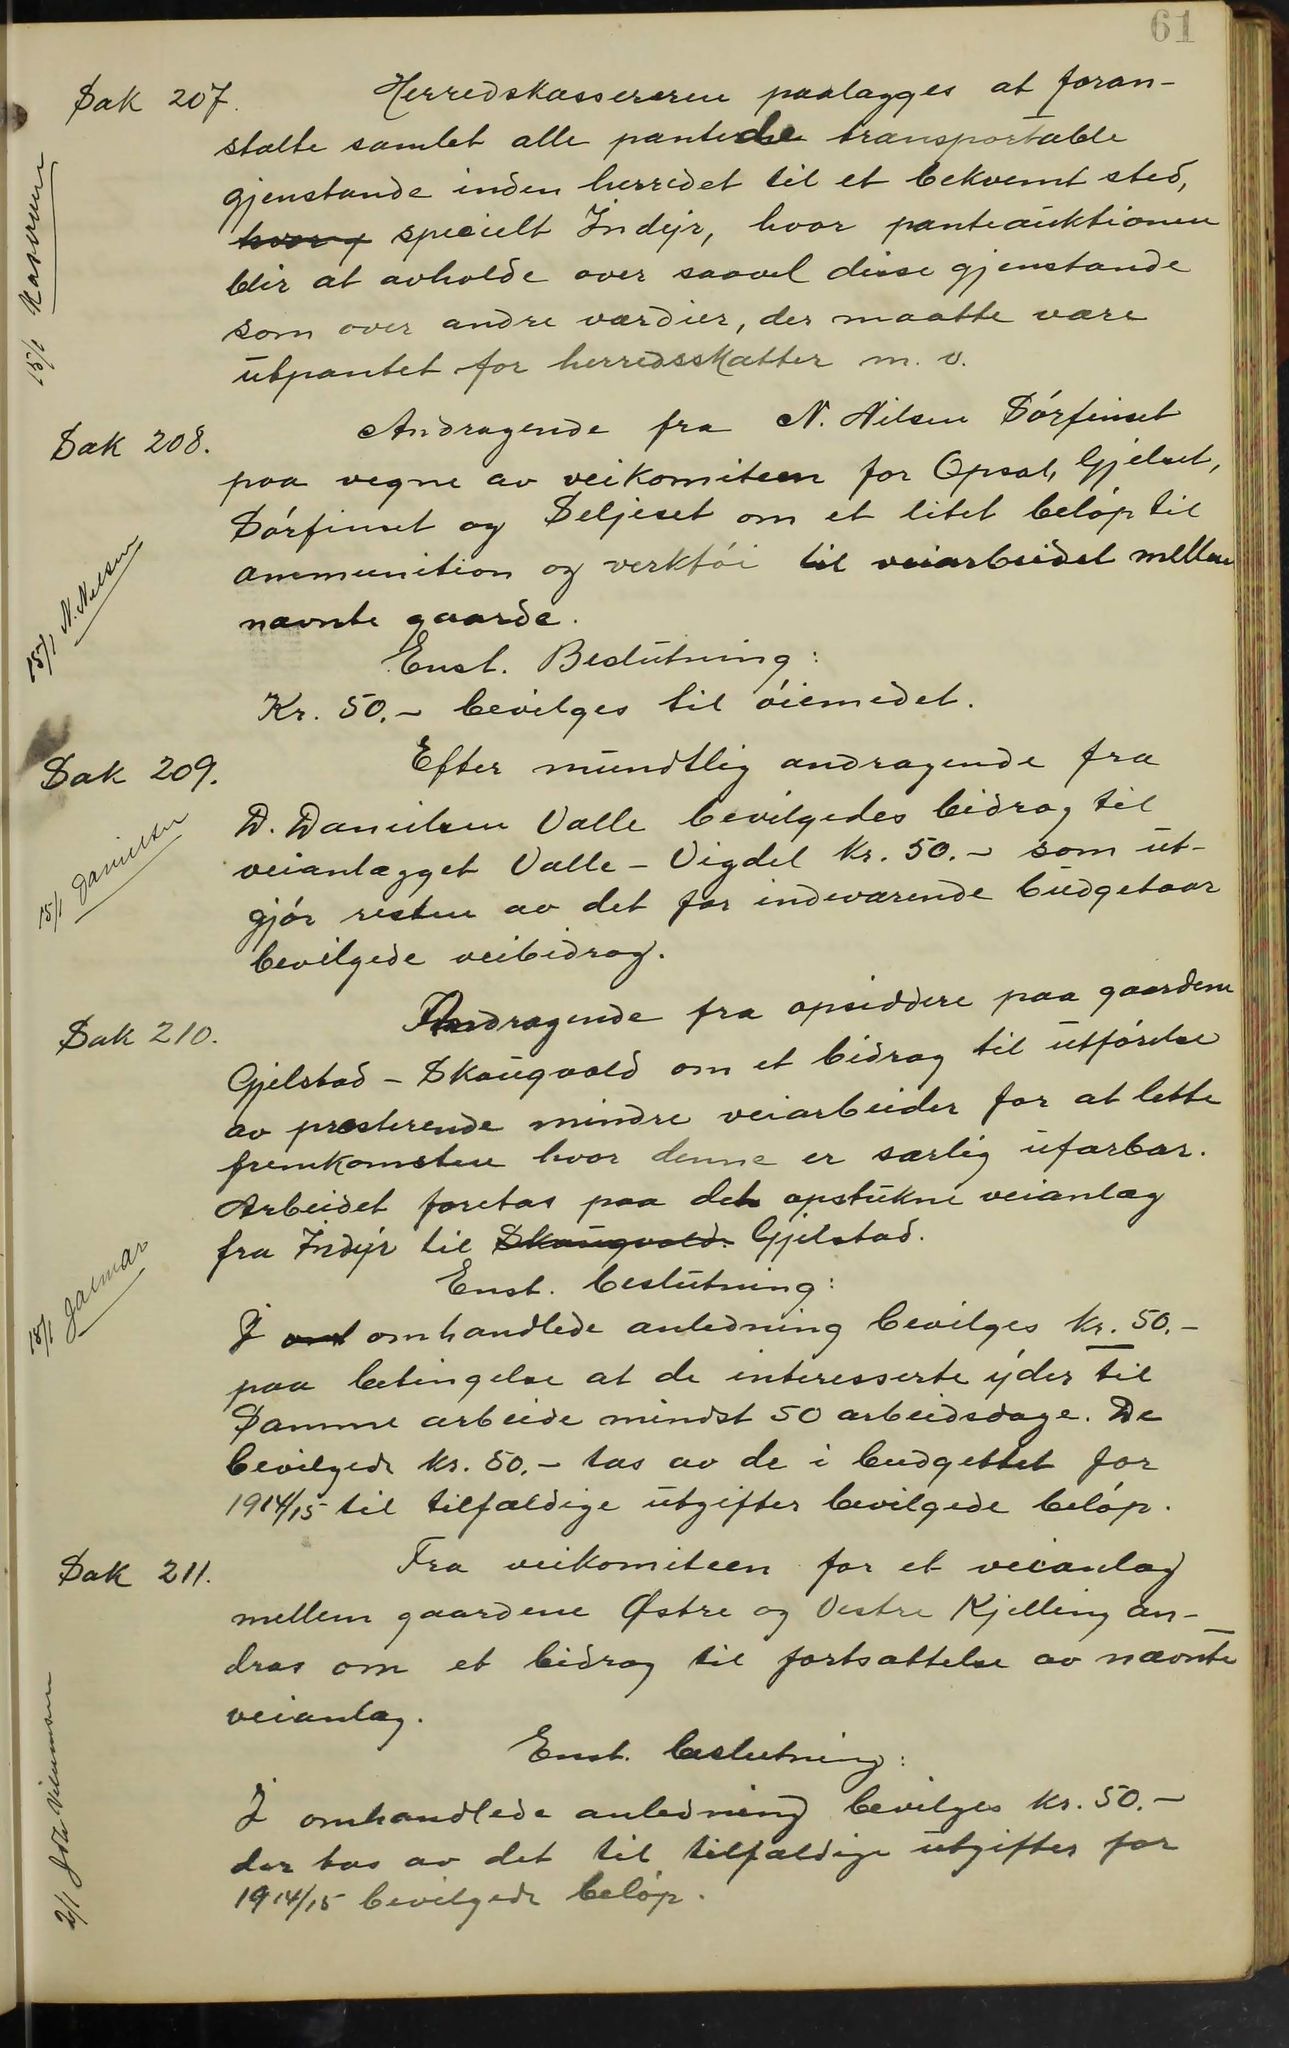 61
Sak 207. Herredskassereren paalægges at foran-
stalte samlet alle pantede transportable
gjenstande inden herredet til et bekvemt sted,
hvor f specielt Indyr, hvor panteauktionen
blir at avholde over saavel disse gjenstande
som over andre værdier, der maatte være
utpantet for herredsskatter m. v.
15/1 Kasereren
Sak 208. Andragende fra N. Nilsen Sórfinset
paa vegne av veikomiteen for Opsal, Gjelset,
Sórfinset og Seljeset om et litet beløp til
ammunition og verktói til veiarbeidet mellem
nævnte gaarde.
15/1 N. Nilsen
Enst. Beslutning:
Kr. 50.- bevilges til óiemedet.
Sak 209. Efter mundtlig andragende fra
D. Danielsen Valle bevilgedes bidrag til
veianlægget Valle - Vigdel kr. 50.- som ut-
gjór resten av det for indeværende budgetaar
bevilgede veibidrag.
15/1 Danielsen
Sak 210. Andragende fra opsiddere paa gaardene
Gjelstad - Skaugvold om et bidrag til utfórelse
av præsterende mindre veiarbeider for at lette
fremkomsten hvor denne er særlig ufarbar.
Arbeidet foretas paa det opstukne veianlæg
fra Indyr til Skaugvold. Gjelstad.
15/1 Jalmar
Enst. beslutning:
I omhandlede anledning bevilges kr. 50.-
paa betingelse at de interesserte yder til
Samme arbeide mindst 50 arbeidsdage. De
bevilgede kr. 50.- tas av de i budgettet for
1914/15 til tilfældige utgifter bevilgede belóp.
Sak 211. Fra veikomiteen for et veianlæg
mellem gaardene Østre og Vestre Kjelling an-
dras om et bidrag til fortsættelse av nævnte
veianlæg.
Enst. beslutning:
I omhandlede anledning bevilges kr. 50.-
der tas av det til tilfældige utgifter for
1914/15 bevilgede belóp.
2/1